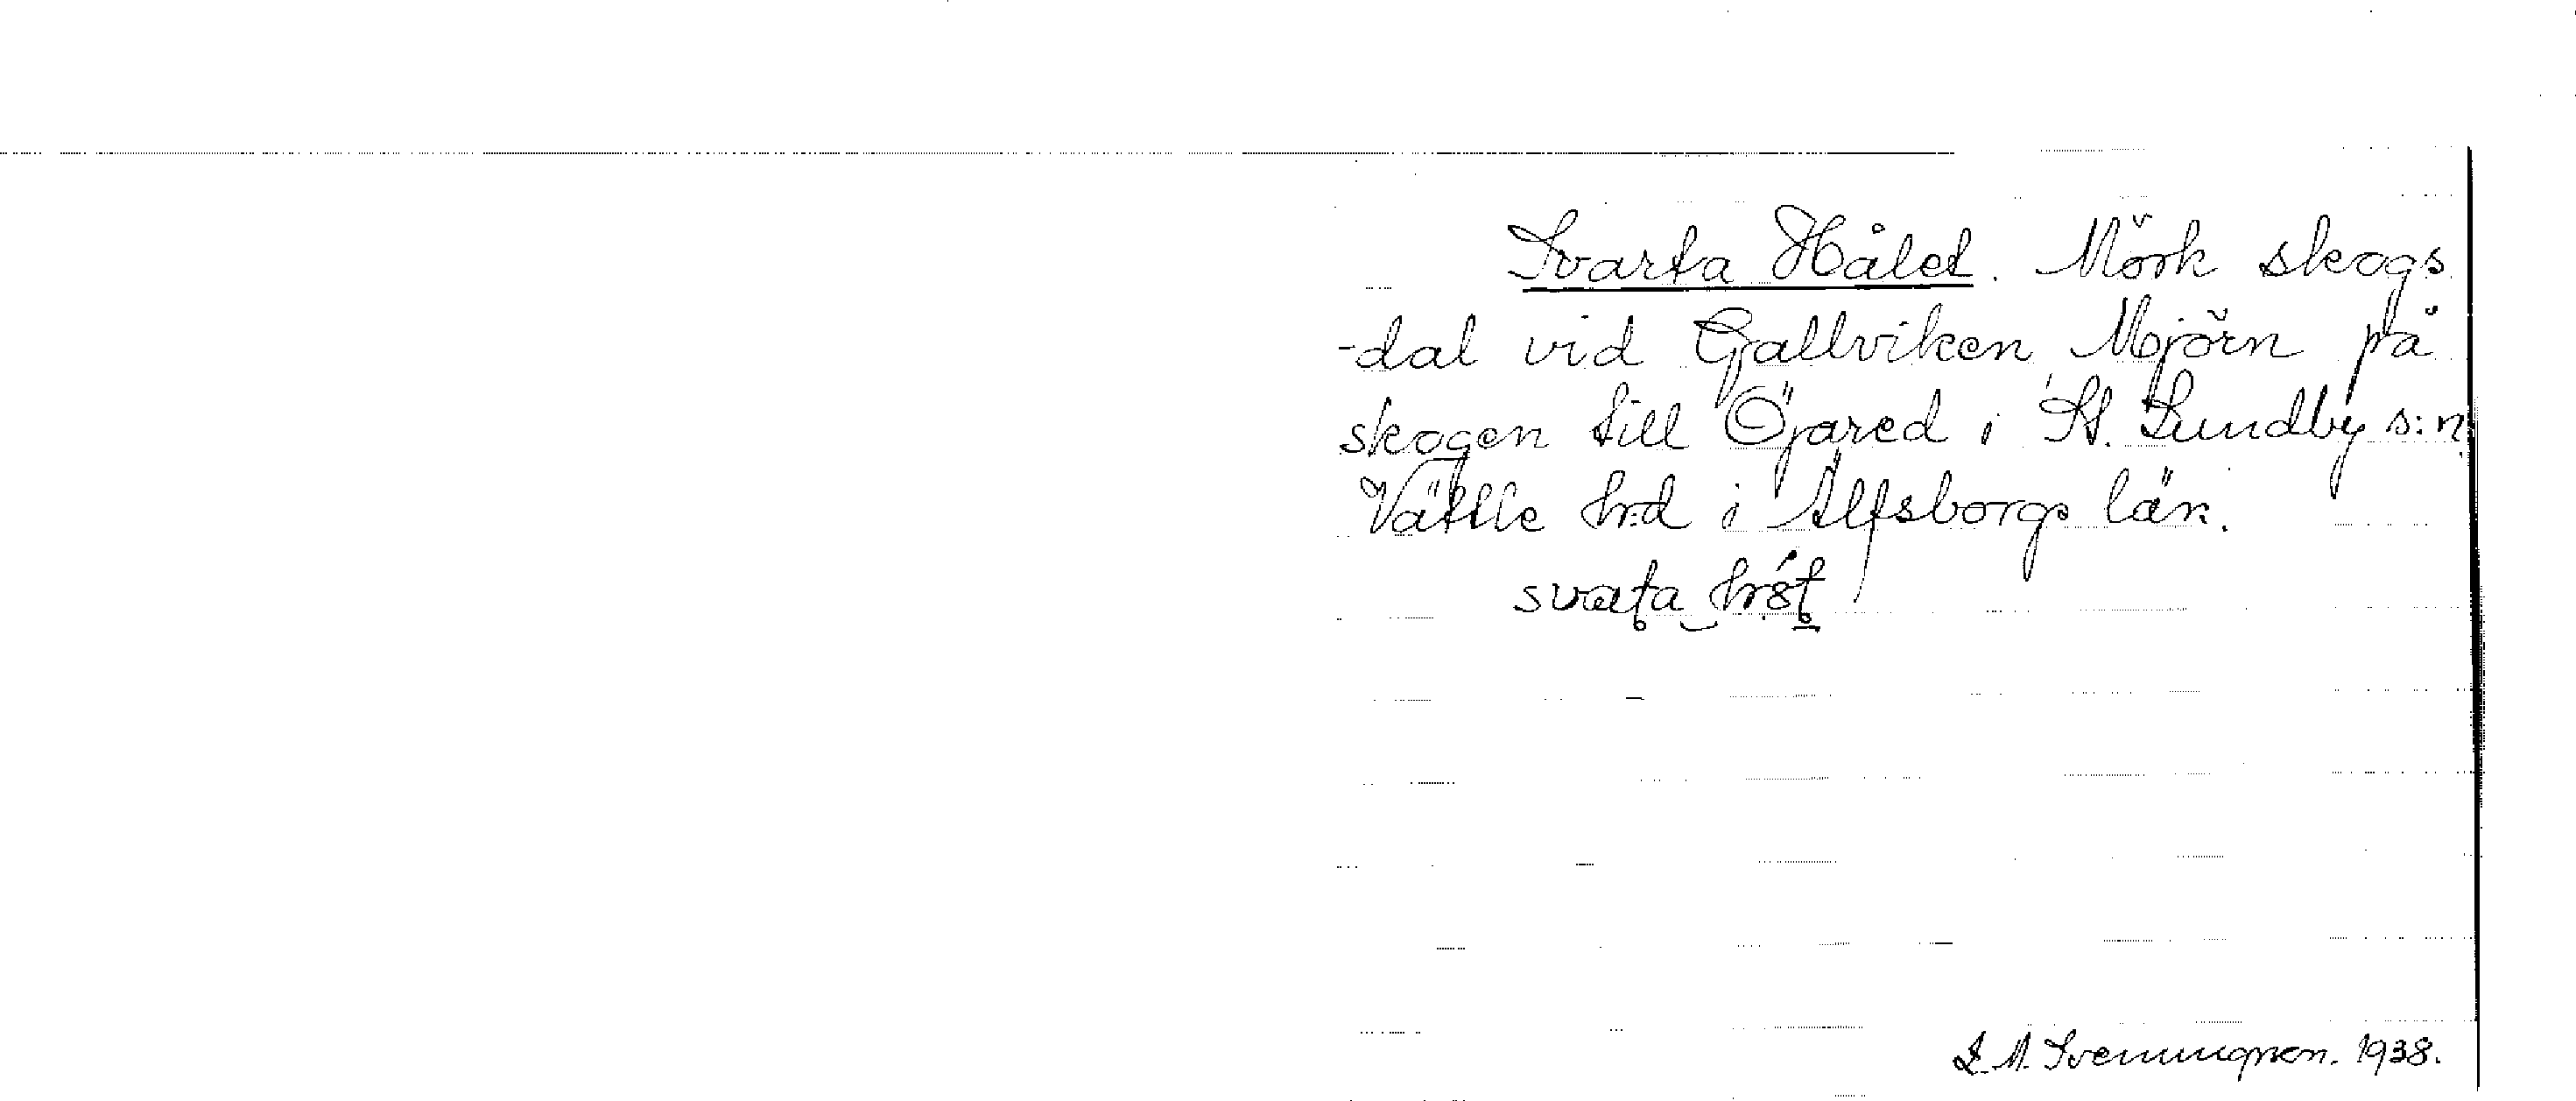 Svarta Hålet. Mörk skogs
-dal vid Gallviken, Mjörn på
skogen till Öjared i St. Lundby s:n,
Vättle hrd i Älfsborgs län.
svata
L. M. Svenungson. 1938.